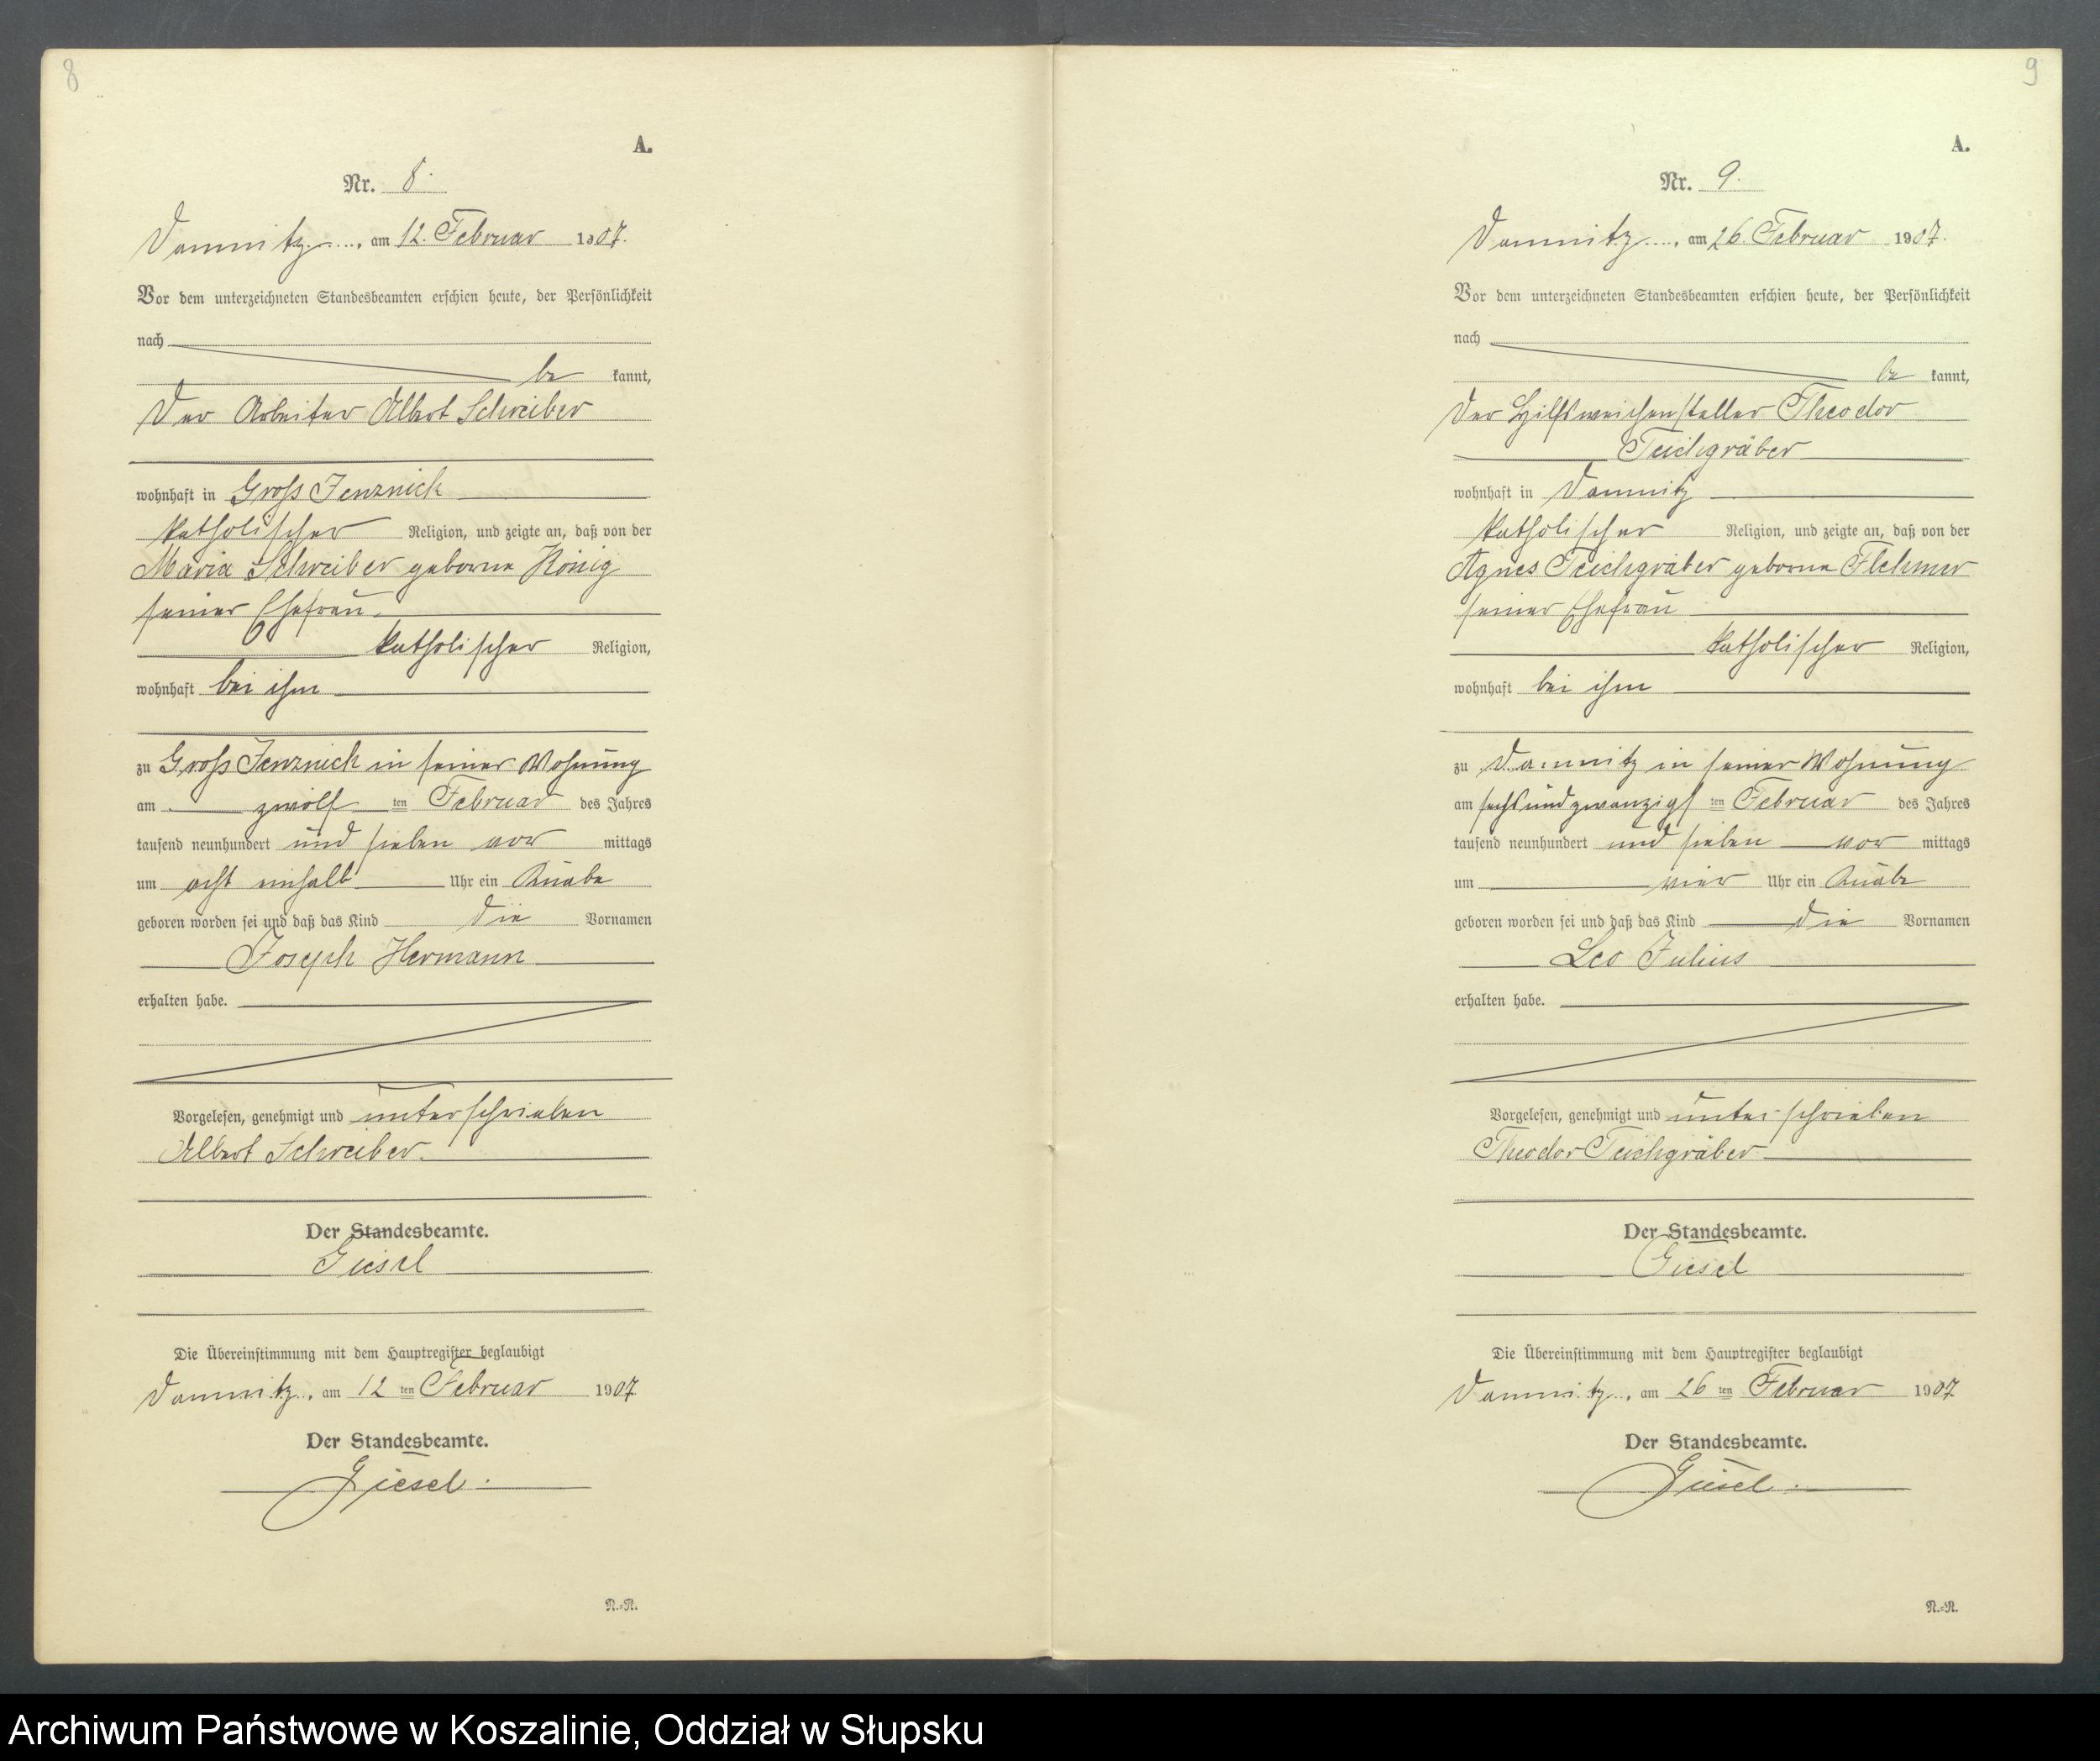 8
A.
Nr. 8.
Damnitz, am 12. Februar 1907.
Vor dem unterzeichneten Standesbeamten erschien heute, der Persönlichkeit
nach
be kannt,
Der Arbeiter Albert Schreiber
wohnhaft in Gross Jenznick
katholischer Religion, und zeigte an, daß von der
Maria Schreiber geborne König
seiner Ehefrau
katholischer Religion,
wohnhaft bei ihm
zu Gross Jenznick in seiner Wohnung
am zwölf ten Februar des Jahres
tausend neunhundert und sieben vor mittags
um acht einhalb Uhr ein Knabe
geboren worden sei und daß das Kind die Vornamen
Joseph Hermann
erhalten habe.
Vorgelesen, genehmigt und unterschrieben
Albert Schreiber.
Der Standesbeamte.
Giesel
Die Übereinstimmung mit dem Hauptregister beglaubigt
Damnitz, am 12 ten Februar 1907
Der Standesbeamte.
Giesel.
N.=R.
9
A.
Nr. 9.
Damnitz, am 26. Februar 1907.
Vor dem unterzeichneten Standesbeamten erschien heute, der Persönlichkeit
nach
be kannt,
Der Hilfsweichensteller Theodor
Teichgräber
wohnhaft in Damnitz
katholischer Religion, und zeigte an, daß von der
Agnes Teichgräber geborne
seiner Ehefrau
katholischer Religion,
wohnhaft bei ihm
zu Damnitz in seiner Wohnung
am sechsundzwanzigs ten Februar des Jahres
tausend neunhundert und sieben vor mittags
um vier Uhr ein Knabe
geboren worden sei und daß das Kind die Vornamen
Leo Julius
erhalten habe.
Vorgelesen, genehmigt und unterschrieben
Theodor Teichgräber
Der Standesbeamte.
Giesel
Die Übereinstimmung mit dem Hauptregister beglaubigt
Damnitz, am 26 ten Februar 1907
Der Standesbeamte.
Giesel.
N.=R.
Archiwum Państwowe w Koszalinie, Oddział w Słupsku